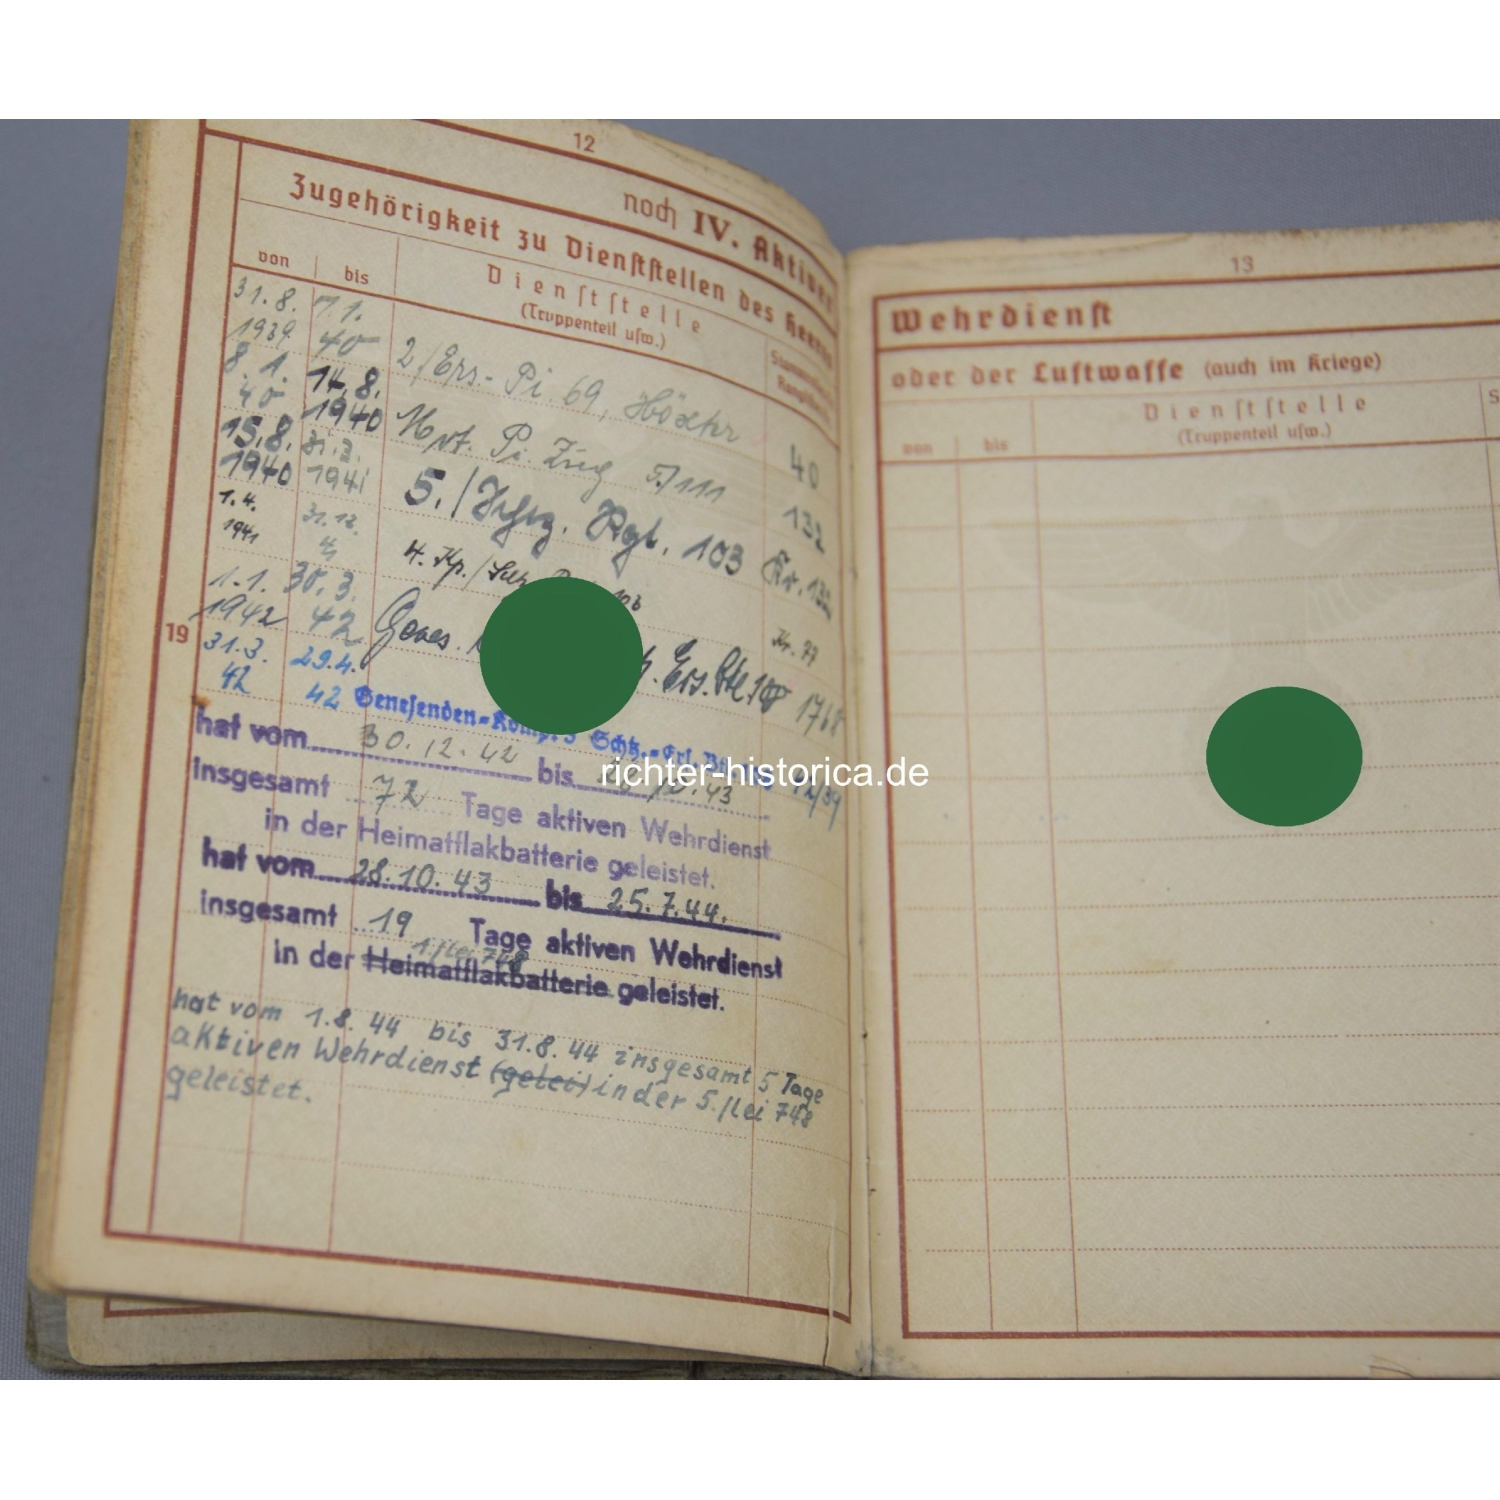 12
noch IV. Aktiver
Zugehörigkeit zu Dienststellen des Heeres
von bis Dienststelle
(Truppenteil usw.)
31.8. 7.1.
1939 40 2/Ers.- Pi. 69, Höxter 40
8.1. 14.8.
40 1940 Pi. Zug 132
15.8. 31.3.
1940 1941 5./ Rgt. 103 Kr. 132
1.4. 31.12.
1941 41 4. Kp./ 103 Kr. 77
1.1. 30.3.
1942 42 Genes. Ers. 1768
19
31.3. 29.4.
42 42 Genesenden-Komp. Schtz.-Ers.
hat vom 30.12.42 bis 10.43
insgesamt 72 Tage aktiven Wehrdienst
in der Heimatflakbatterie geleistet.
hat vom 28.10.43 bis 25.7.44.
insgesamt 19 Tage aktiven Wehrdienst
1./lei 748
in der Heimatflakbatterie geleistet.
hat vom 1.8.44 bis 31.8.44 insgesamt 5 Tage
aktiven Wehrdienst (gelei) in der 5./lei 748
geleistet.
13
Wehrdienst
oder der Luftwaffe (auch im Kriege)
von bis Dienststelle
(Truppenteil usw.)
richter-historica.de